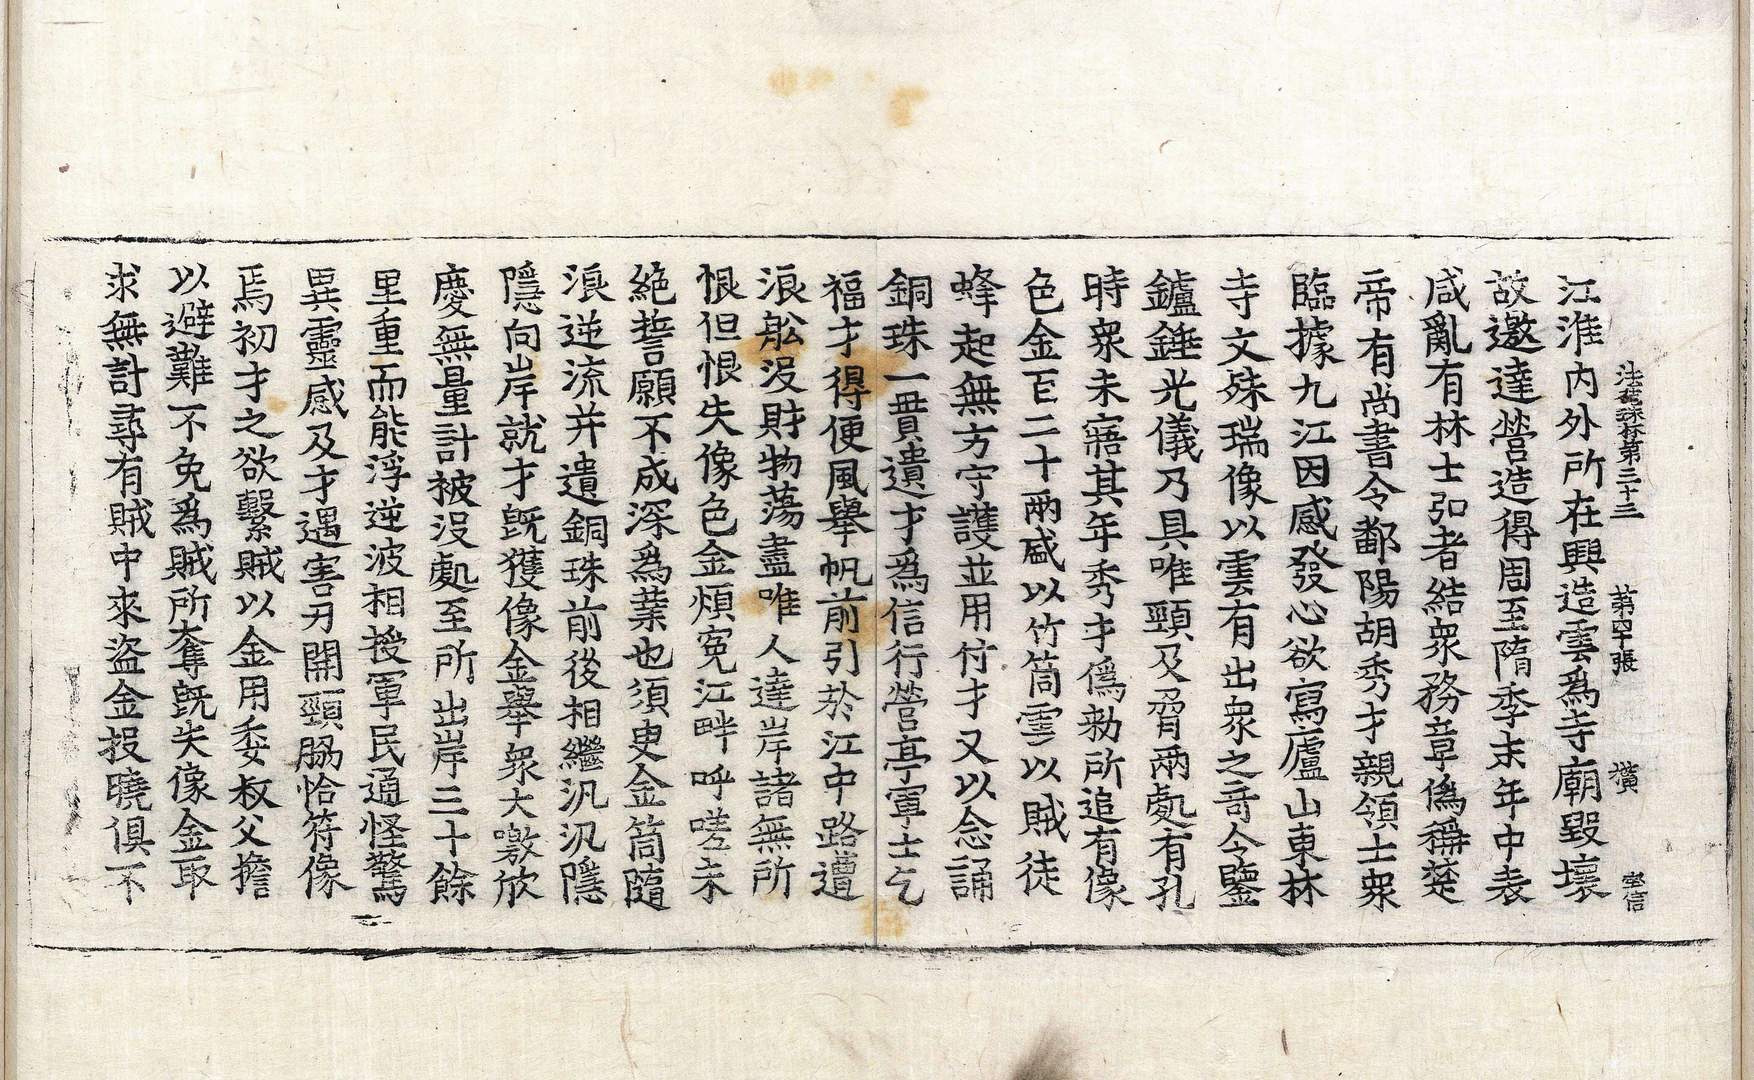 法苑珠林第三十三 第四十張 橫 宝信
江淮內外所在興造雲爲寺廟毀壞
故邀達營造得周至隋季末年中表
咸亂有林士弘者結衆務章僞稱楚
帝有尚書令鄱陽胡秀才親領士衆
臨據九江因感發心欲寫廬山東林
寺文殊瑞像以雲有出衆之奇令鑒
鑪錘光儀乃具唯頸及脅兩處有孔
時衆未寤其年秀才僞勑所追有像
色金百二十兩盛以竹筒雲以賊徒
蜂起無方守護並用付才又以念誦
銅珠一貫遺才爲信行營亭軍士乞
福才得便風舉帆前引於江中路遭
浪舩沒財物蕩盡唯人達岸諸無所
恨但恨失像色金煩冤江畔呼嗟未
絕誓願不成深爲業也須臾金筒隨
浪逆流幷遺銅珠前後相繼汎汎隱
隱向岸就才旣獲像金舉衆大噭欣
慶無量計被沒處至所出岸三十餘
里重而能浮逆波相授軍民通怪驚
異靈感及才遇害刃開頸脇恰符像
焉初才之欲繫賊以金用委叔父擔
以避難不免爲賊所奪旣失像金取
求無計尋有賊中來盜金投曉俱不